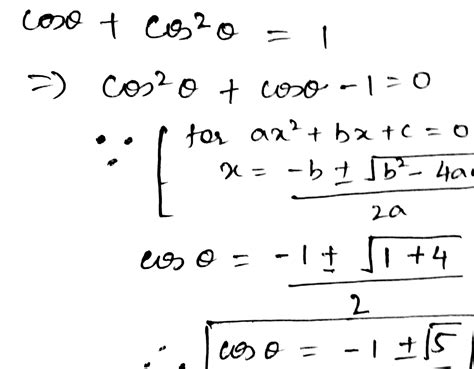 cosθ + cos²θ = 1
=> cos²θ + cosθ - 1 = 0
∵ [ for ax² + bx + c = 0
x = (-b ± √(b² - 4a
2a
cosθ = (-1 ± √(1 + 4)) / 2
∴ cosθ = -1 ± √5